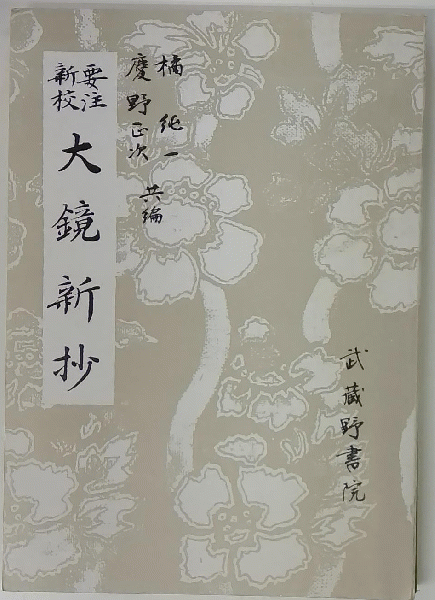 要注
新校
大鏡新抄
橘純一
慶野正次 共編
武蔵野書院